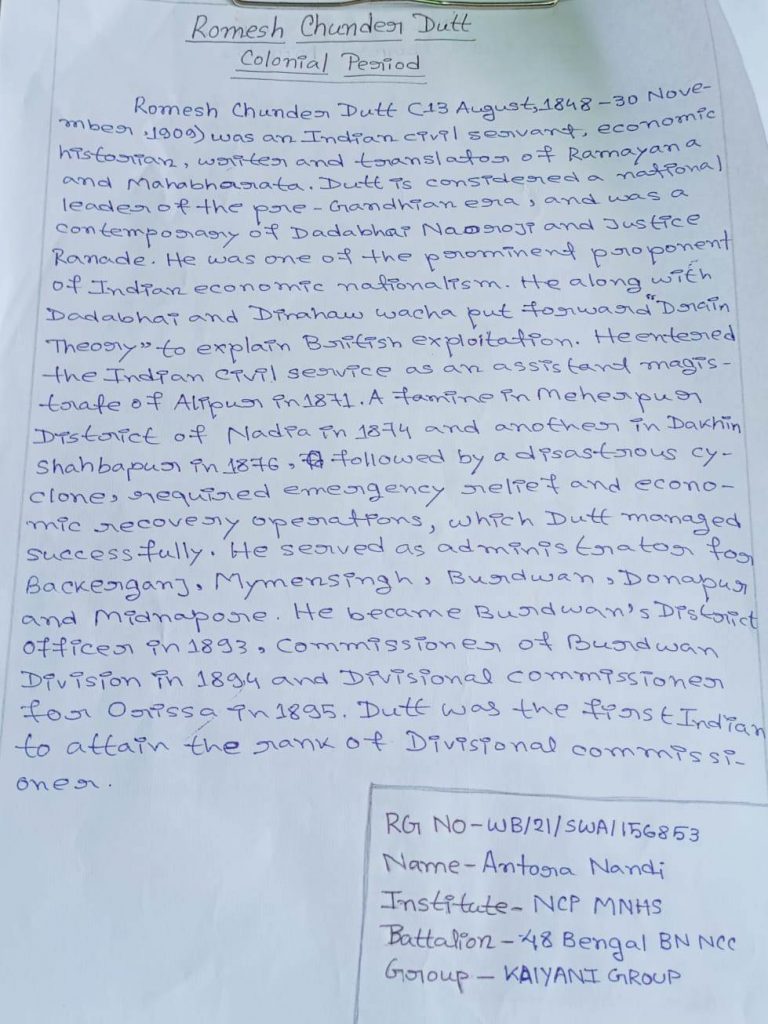 Romesh Chunder Dutt
Colonial Period
Romesh Chunder Dutt (13 August, 1848 - 30 Nove-
mber, 1909) was an Indian civil servant, economic
historian, writer and translator of Ramayana
and Mahabharata. Dutt is considered a national
leader of the pre-Gandhian era, and was a
contemporary of Dadabhai Naoroji and Justice
Ranade. He was one of the prominent proponent
of Indian economic nationalism. He along with
Dadabhai and Dinahaw wacha put forward "Drain
Theory" to explain British exploitation. He entered
the Indian Civil service as an assistant magis-
trate of Alipur in 1871. A famine in Meherpur
District of Nadia in 1874 and another in Dakhin
Shahbapur in 1876, followed by a disastrous cy-
clone, required emergency relief and econo-
mic recovery operations, which Dutt managed
successfully. He served as administrator for
Backerganj, Mymensingh, Burdwan, Donapur
and Midnapore. He became Burdwan's District
Officer in 1893, Commissioner of Burdwan
Division in 1894 and Divisional commissioner
for Orissa in 1895. Dutt was the first Indian
to attain the rank of Divisional commissi-
oner.
RG NO-WB/21/SWA/156853
Name-Antora Nandi
Institute- NCP MNHS
Battalion - 48 Bengal BN NCC
Group - KAIYANI GROUP